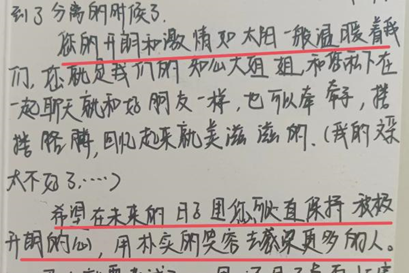 到了分离的时候了.
您的开朗和激情如太阳一般温暖着我
们,您就是我们的知心大姐姐,和您私下在
一起聊天就和好朋友一样,也可以牵牵手,搭
搭胳膊,回忆起来就美滋滋的.(我的文采
太不好了·····)
希望在未来的日子里您可以一直保持积极
开朗的心,用朴实的笑容去感染更多的人。